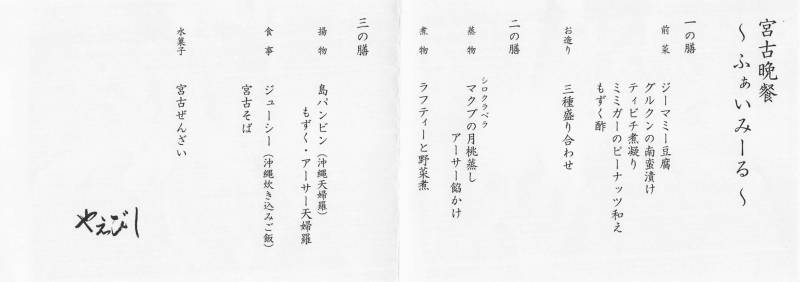 宮古晩餐
～ふぁいみーる～
一の膳
前菜
ジーマミー豆腐
グルクンの南蛮漬け
ティビチ煮凝り
ミミガーのピーナッツ和え
もずく酢
お造り
三種盛り合わせ
二の膳
蒸物
シロクラベラ
マクブの月桃蒸し
アーサー餡かけ
煮物
ラフティーと野菜煮
三の膳
揚物
島パンビン（沖縄天婦羅）
もずく・アーサー天婦羅
食事
ジューシー（沖縄炊き込みご飯）
宮古そば
水菓子
宮古ぜんざい
やえびし